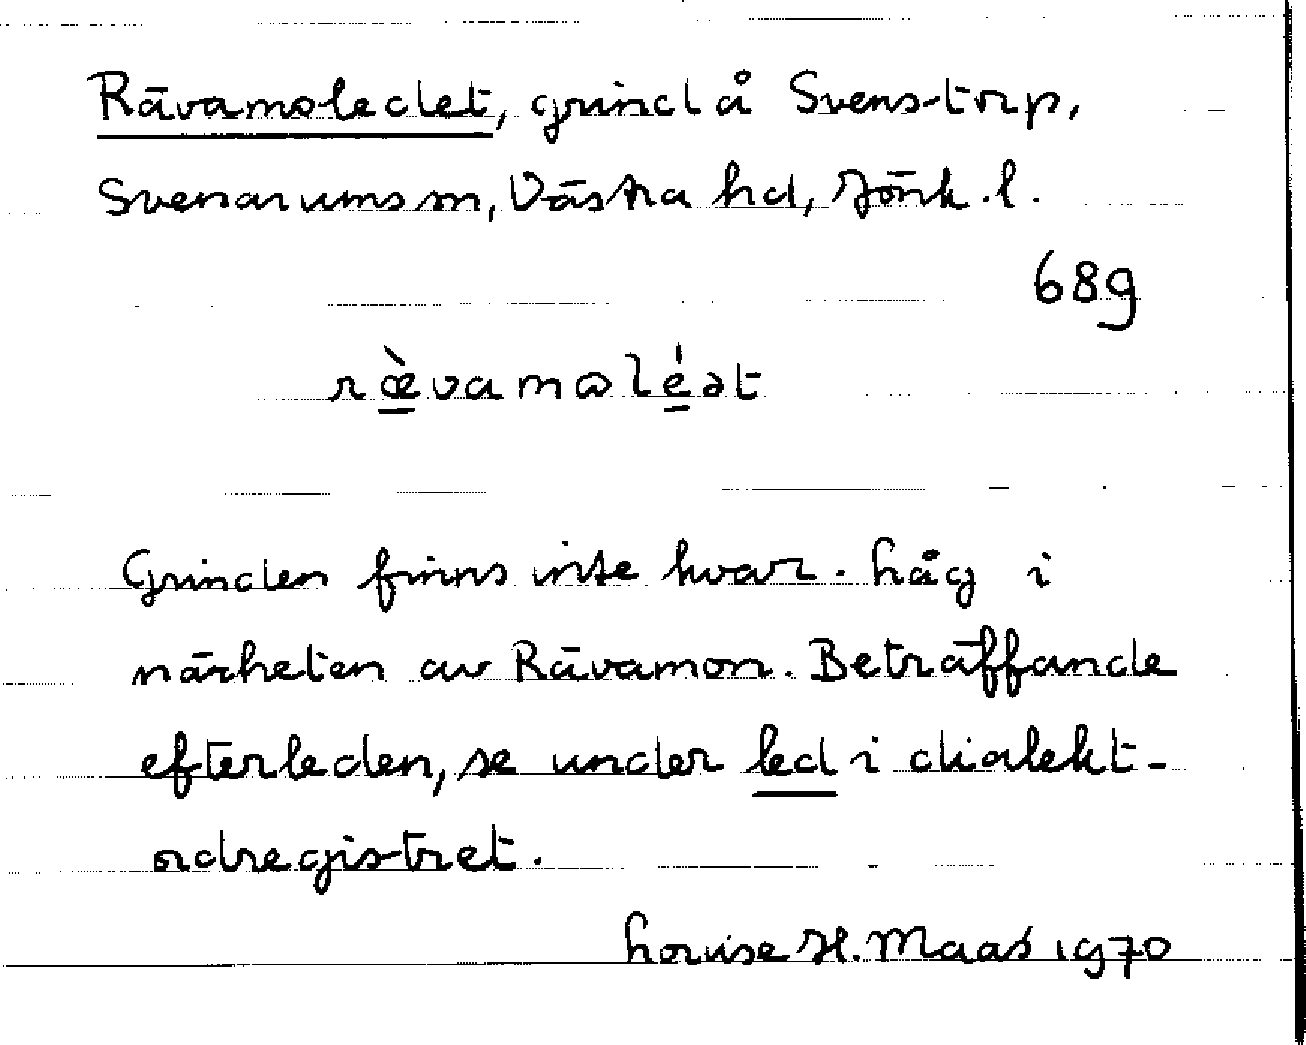 Rävamoledet, grind å Svenstorp,
Svenarums sn, Västra hd, Jönk. l.
689
ræ̀vamωléət
Grinden finns inte kvar. Låg i
närheten av Rävamon. Beträffande
efterleden, se under led i dialekt-
ordregistret.
Louise H. Maas 1970